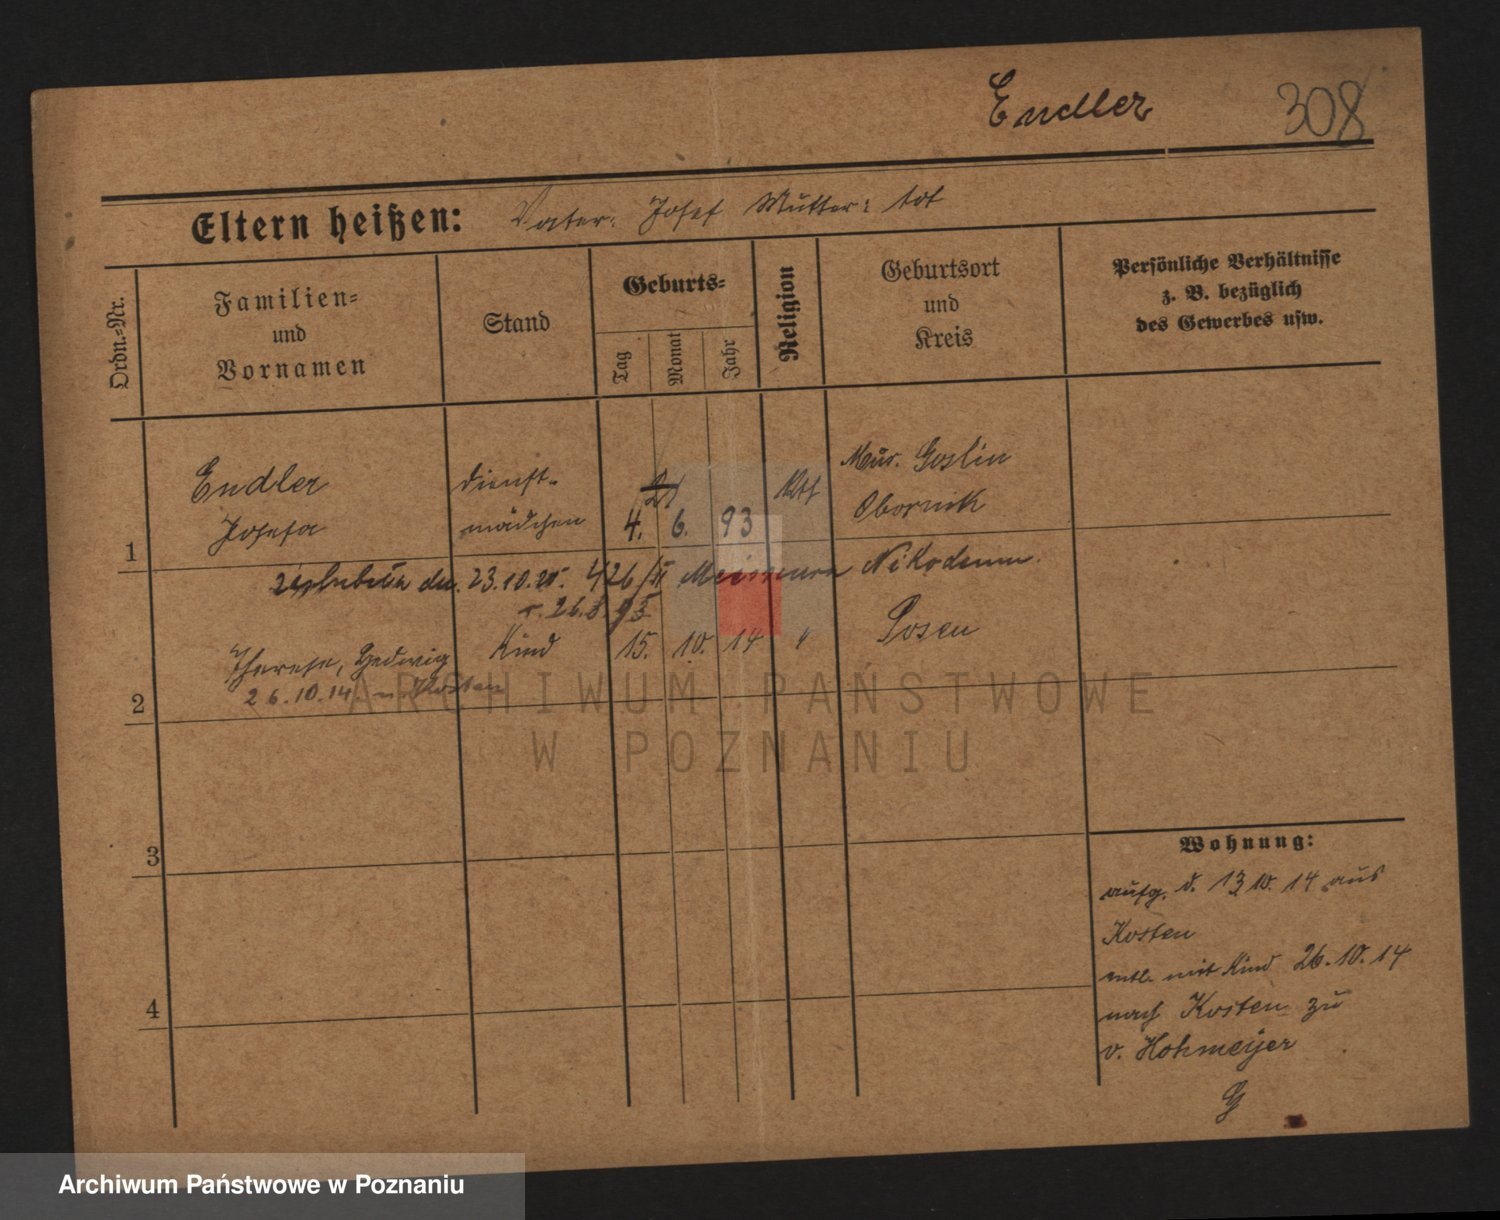 Endler 308
Eltern heißen: Vater: Josef Mutter: tot
Ordn.-Nr.
Familien-
und
Vornamen
Stand
Geburts-
Tag
Monat
Jahr
Religion
Geburtsort
und
Kreis
Persönliche Verhältnisse
z. B. bezüglich
des Gewerbes usw.
1 Endler Dienst- Kth Mur. Goslin
Josefa mädchen 4. 6. 93 Obornik
23.10.20. 426/II Nikodemus
26.8.93
2 Therese, Hedwig Kind 15. 10. 14 " Posen
26.10.14 n. Kosten
ARCHIWUM PAŃSTWOWE
W POZNANIU
3
4
Wohnung:
aufg. d. 13.10.14 aus
Kosten
entl. mit Kind 26.10.14
nach Kosten zu
v. Hohmeijer
G
Archiwum Państwowe w Poznaniu